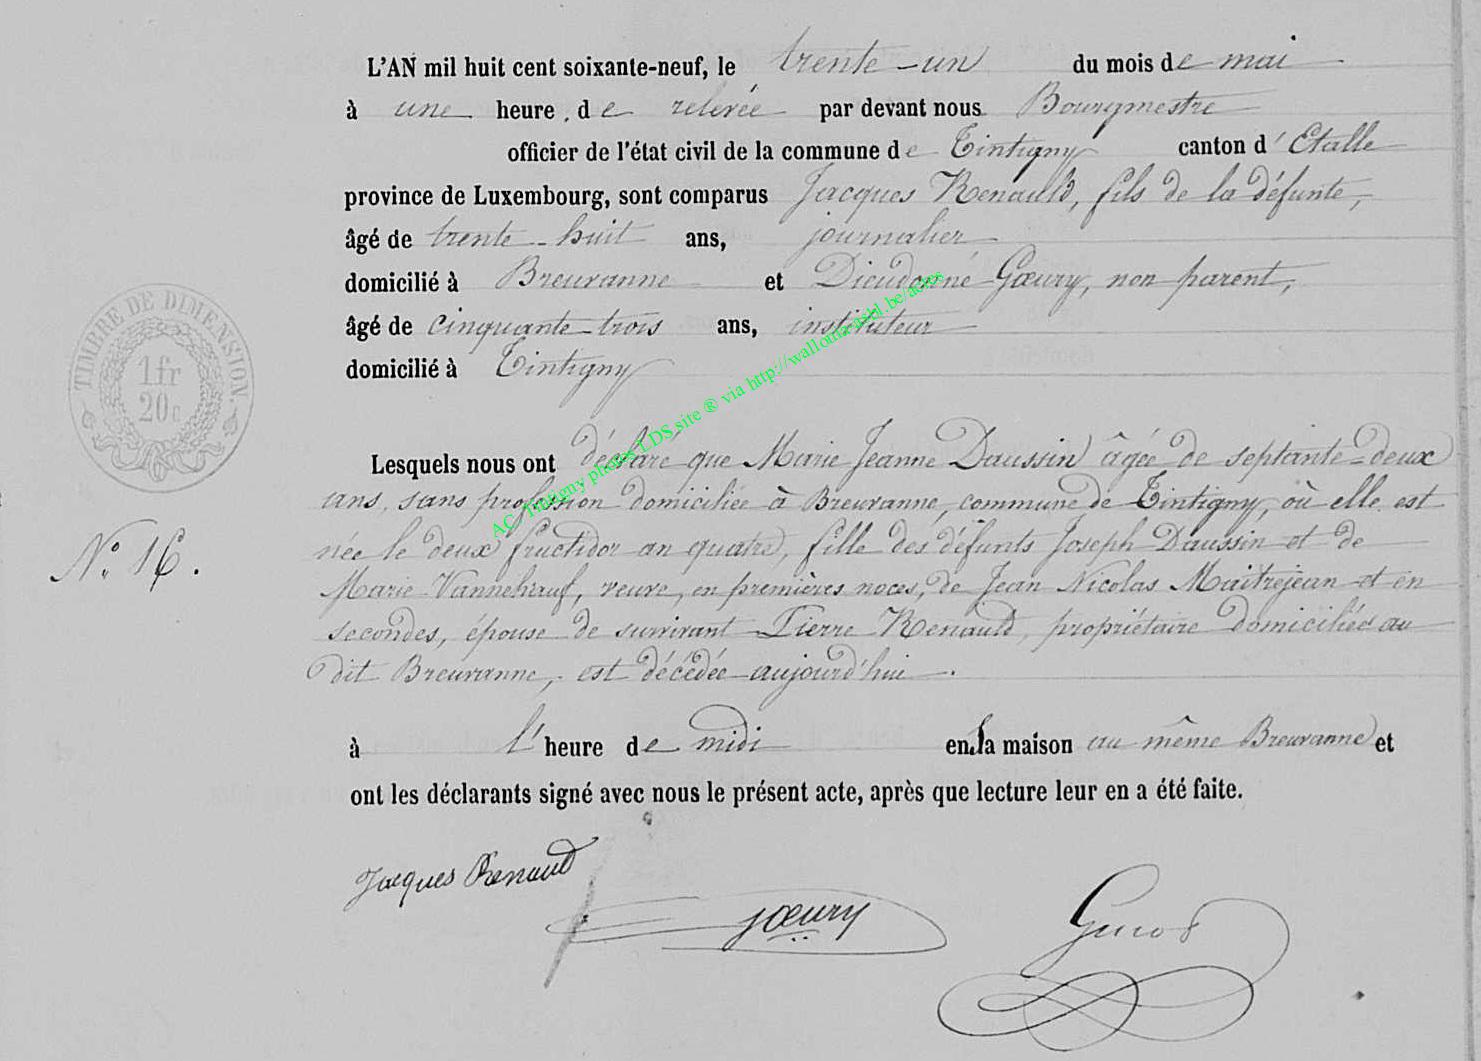 L'AN mil huit cent soixante-neuf, le trente-un du mois de mai
à une heure de relevée par devant nous Bourgmestre
officier de l'état civil de la commune de Tintigny canton d'Etalle
province de Luxembourg, sont comparus Jacques Renauld, fils de la défunte,
âgé de trente-huit ans, journalier
domicilié à Breuvanne et Dieudonné Gœury, non parent,
âgé de cinquante-trois ans, instituteur
domicilié à Tintigny
TIMBRE DE DIMENSION.
1 fr
20 c
Lesquels nous ont déclaré que Marie Jeanne Daussin âgée de septante-deux
ans, sans profession domiciliée à Breuvanne, commune de Tintigny, où elle est
née le deux fructidor an quatre, fille des défunts Joseph Daussin et de
Marie, veuve, en premières noces, de Jean Nicolas Maitrejean et en
secondes, épouse de survivant Pierre Renauld, propriétaire domiciliée au
dit Breuvanne, est décédée aujourd'hui.
N° 16.
à l'heure de midi en la maison au même Breuvanne et
ont les déclarants signé avec nous le présent acte, après que lecture leur en a été faite.
Jacques Renauld
Gœury
AC Tintigny photos LDS.site ® via http://wallonia-asbl.be/actes